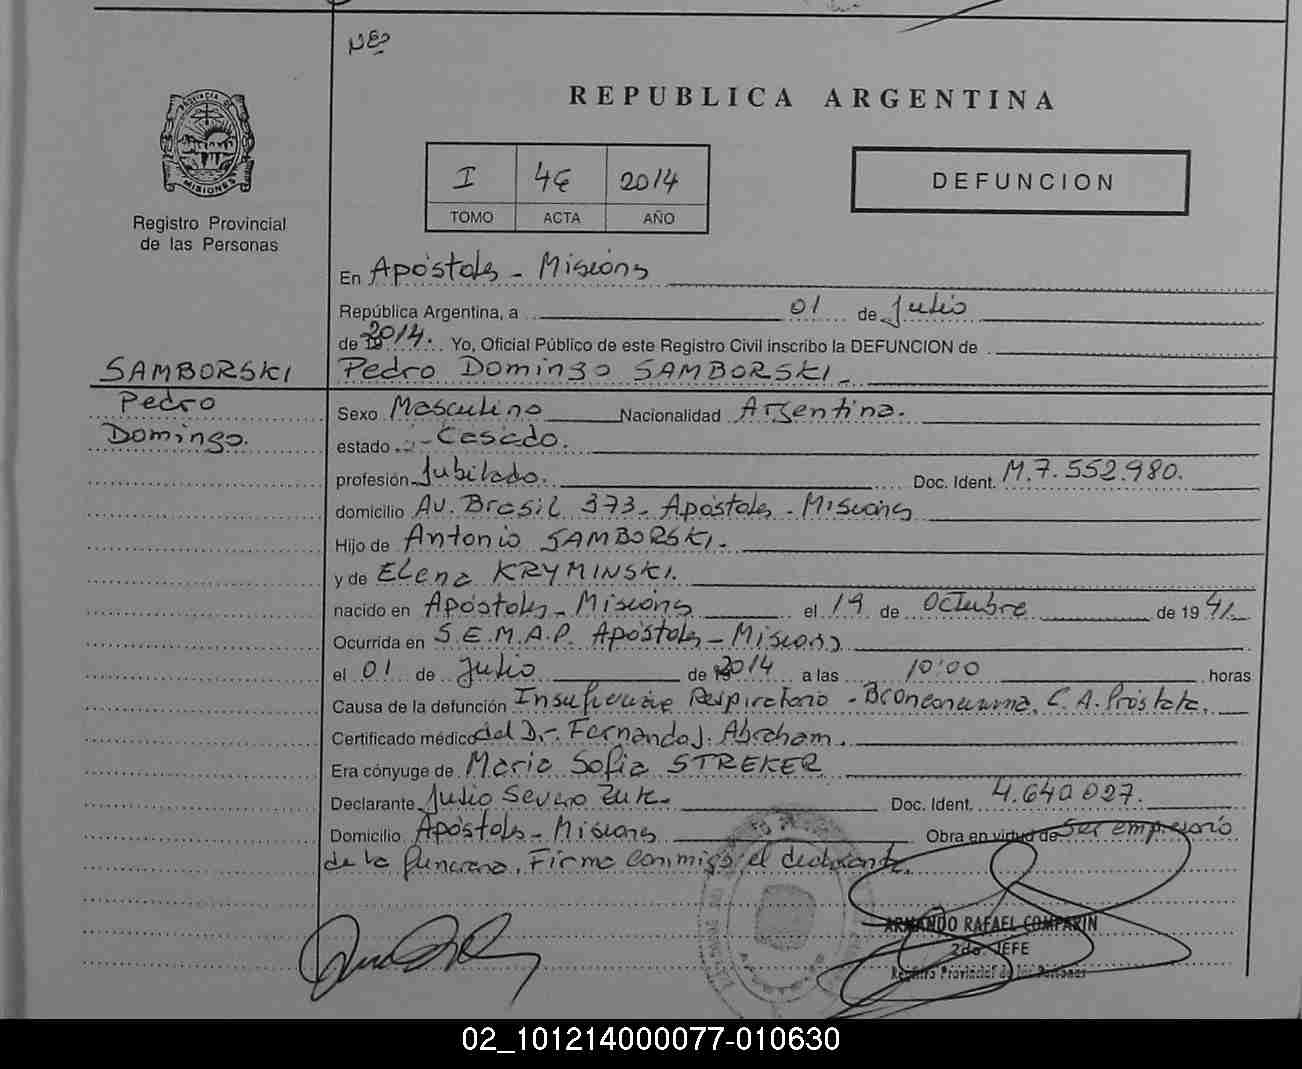 REPUBLICA ARGENTINA
PROVINCIA DE
MISIONES
Registro Provincial
de las Personas
I 46 2014
TOMO ACTA AÑO
DEFUNCION
En Apóstoles - Misiones
República Argentina, a 01 de Julio
de 2014. Yo, Oficial Público de este Registro Civil inscribo la DEFUNCION de
SAMBORSKI
Pedro
Domingo.
Pedro Domingo SAMBORSKI.
Sexo Masculino Nacionalidad Argentina.
estado - Casado.
profesión Jubilado. Doc. Ident. M.7.552.980.
domicilio Av. Brasil 373 - Apóstoles - Misiones
Hijo de Antonio SAMBORSKI.
y de Elena KRYMINSKI.
nacido en Apóstoles - Misiones el 19 de Octubre de 19
Ocurrida en S.E.M.A.P. Apóstoles - Misiones
el 01 de Julio de 2014 a las 10:00 horas
Causa de la defunción Respiratorio C.A. Próstata.
Certificado médico del Dr. Fernando J. Abraham.
Era cónyuge de Maria Sofia STREKER
Declarante Julio Severo Doc. Ident. 4.640.027.
Domicilio Apóstoles - Misiones Obra en virtud de Ser empresario
de la funeraria. Firma conmigo el declarante.
ARMANDO RAFAEL COMPARIN
2do. JEFE
Registro Provincial de las Personas
02_101214000077-010630